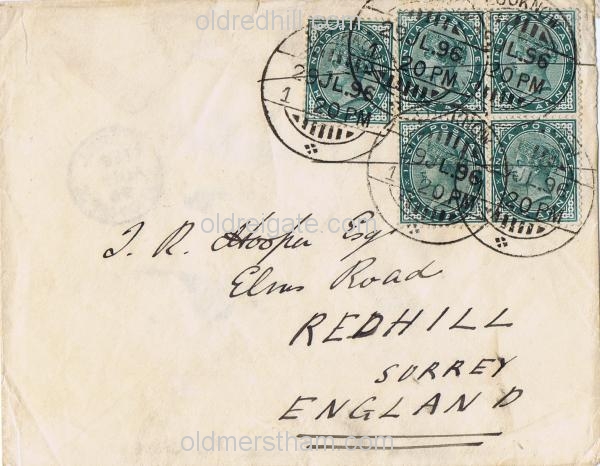 oldredhill.com
LUCKNOW
INDIA POSTAGE
29 JL.96
1 20 PM
29 JL.96
1 20 PM
29 JL.96
1 20 PM
29 JL.96
1 20 PM
29 JL.96
1 20 PM
oldreigate.com
J. R. Hooper Esq
Elms Road
REDHILL
SURREY
ENGLAND
oldmerstham.com